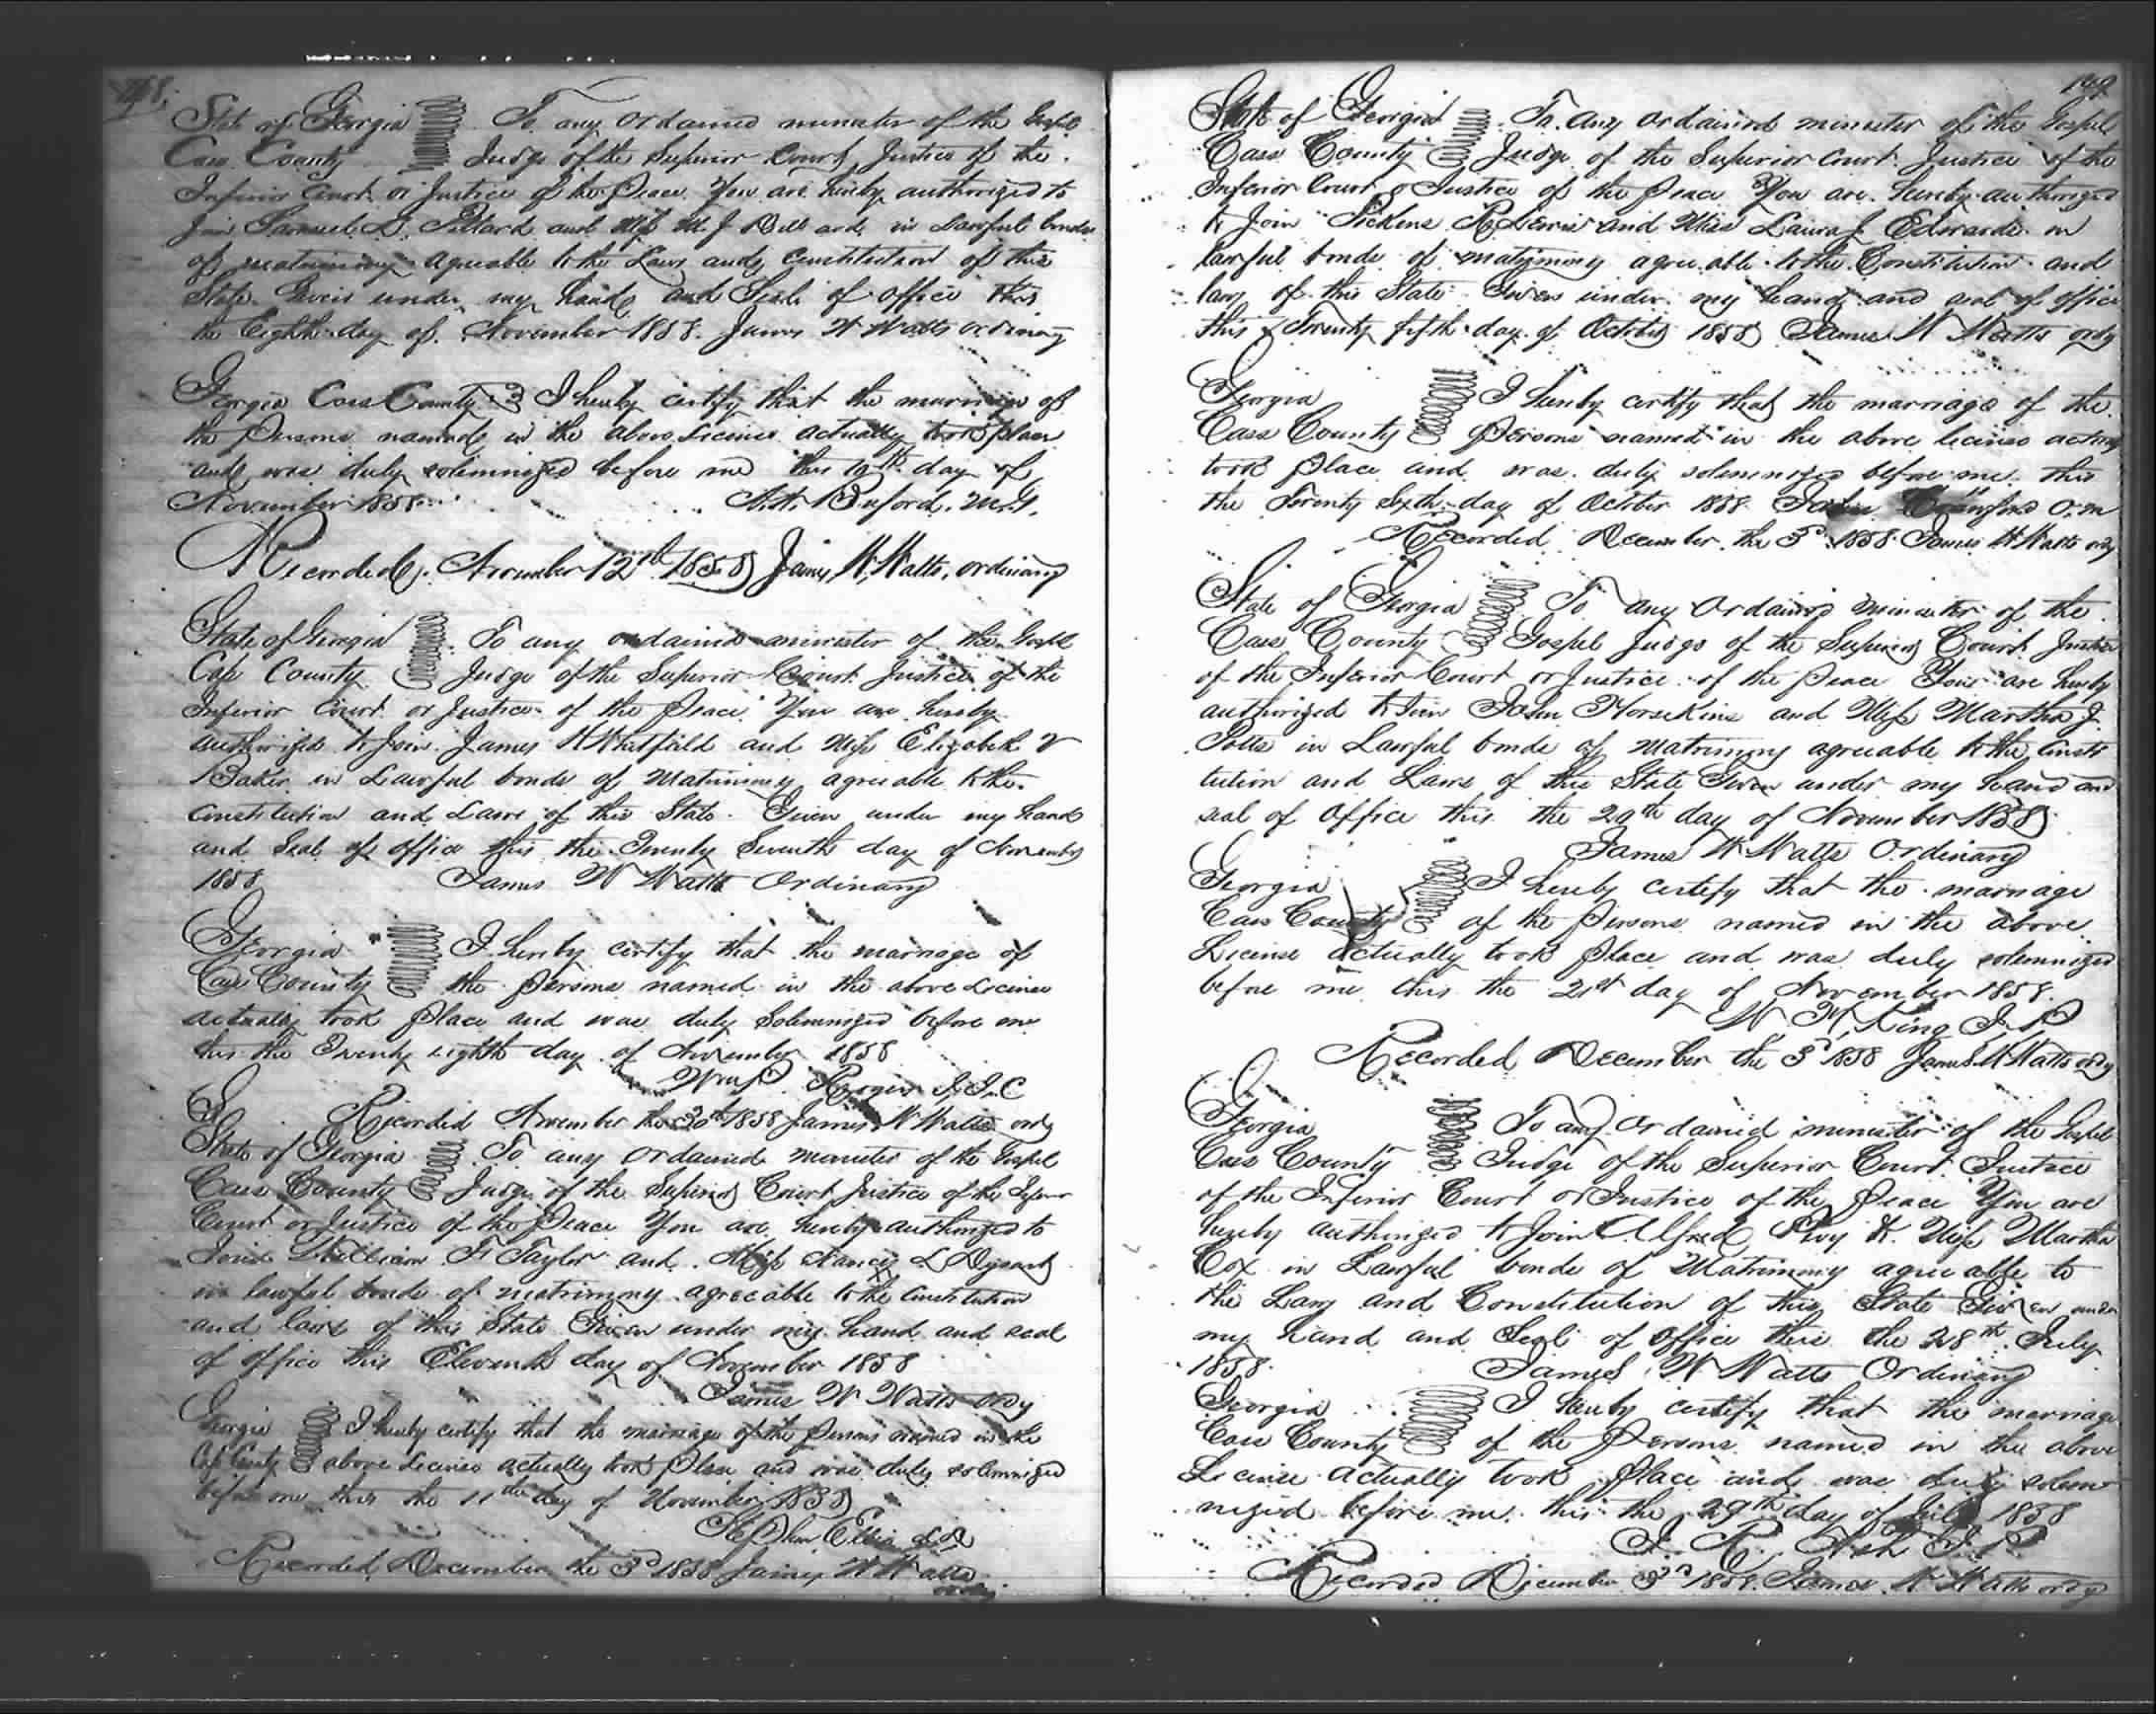 168
State of Georgia To any ordained minister of the Gospel
Cass County Judge of the Superior Court Justice of the
Inferior Court or Justice of the Peace You are hereby authorized to
Join Samuel and Miss M. J. in Lawful bonds
of matrimony agreeable to the Laws and Constitution of this
State Given under my hand and Seal of office this
the Eighth day of November 1858. James W Watts ordinary
Georgia Cass County I hereby certify that the marriage of
the Persons named in the above License actually took place
and was duly solemnized before me this 10th day of
November 1858 Buford, M.G.
Recorded November 12th 1858 James W. Watts, ordinary
State of Georgia To any ordained minister of the Gospel
Cass County Judge of the Superior Court Justice of the
Inferior Court or Justice of the Peace You are hereby
authorized to Join James H Whitfield and Miss Elizabeth V
Baker in Lawful bonds of Matrimony agreeable to the
Constitution and Laws of this State. Given under my hand
and Seal of office this the Twenty Seventh day of November
1858 James W Watts Ordinary
Georgia I hereby certify that the marriage of
Cass County the Persons named in the above License
actually took place and was duly Solemnized before me
this the Twenty eighth day of November 1858
Wm P. Rogers J.I.C
Recorded November the 30th 1858 James W Watts ordy
State of Georgia To any ordained minister of the Gospel
Cass County Judge of the Superior Court Justice of the Inferior
Court or Justice of the Peace You are hereby authorized to
Join William F Taylor and Miss Nancy L Dysart
in lawful bonds of matrimony agreeable to the Constitution
and laws of this State Given under my hand and seal
of office this Eleventh day of November 1858
James W Watts ordy
Georgia I hereby certify that the marriage of the Persons named in the
Cass County above License actually took Place and was duly solemnized
before me this the 11th day of November 1858
Stephen Ellis
Recorded December the 3d 1858 James W Watts
ordy
169
State of Georgia To any ordained minister of the Gospel
Cass County Judge of the Superior Court Justice of the
Inferior Court or Justice of the Peace You are hereby authorized
to Join Pickens R Lewis and Miss Laura J Edwards in
lawful bonds of matrimony agreeable to the Constitution and
laws of this State Given under my hand and seal of office
this Twenty fifth day of October 1858 James W Watts ordy
Georgia I hereby certify that the marriage of the
Cass County Persons named in the above license actually
took place and was duly solemnized before me this
the Twenty Sixth day of October 1858 Crawford O.M
Recorded December the 3d 1858 James W Watts ordy
State of Georgia To any Ordained minister of the
Cass County Gospel Judge of the Superior Court Justice
of the Inferior Court or Justice of the Peace You are hereby
authorized to Join John Horsekins and Miss Martha J.
Potts in Lawful bonds of matrimony agreeable to the Consti
tution and Laws of this State Given under my hand and
seal of Office this the 20th day of November 1858
James W Watts Ordinary
Georgia I hereby certify that the marriage
Cass County of the Persons named in the above
License actually took Place and was duly solemnized
before me this the 21st day of November 1858.
W. H. King J.P
Recorded December the 3d 1858 James W Watts ordy
Georgia To any Ordained minister of the Gospel
Cass County Judge of the Superior Court Justice
of the Inferior Court or Justice of the Peace You are
hereby authorized to Join Alfred Miss Martha
Cox in Lawful bonds of Matrimony agreeable to
the Laws and Constitution of this State Given under
my hand and Seal of office this the 28th July
1858. James W Watts Ordinary
Georgia I hereby certify that the marriage
Cass County of the Persons named in the above
License actually took place and was duly solem
nized before me this the 29th day of July 1858
J. R. Ash J.P
Recorded December 3rd 1858. James W Watts ordy